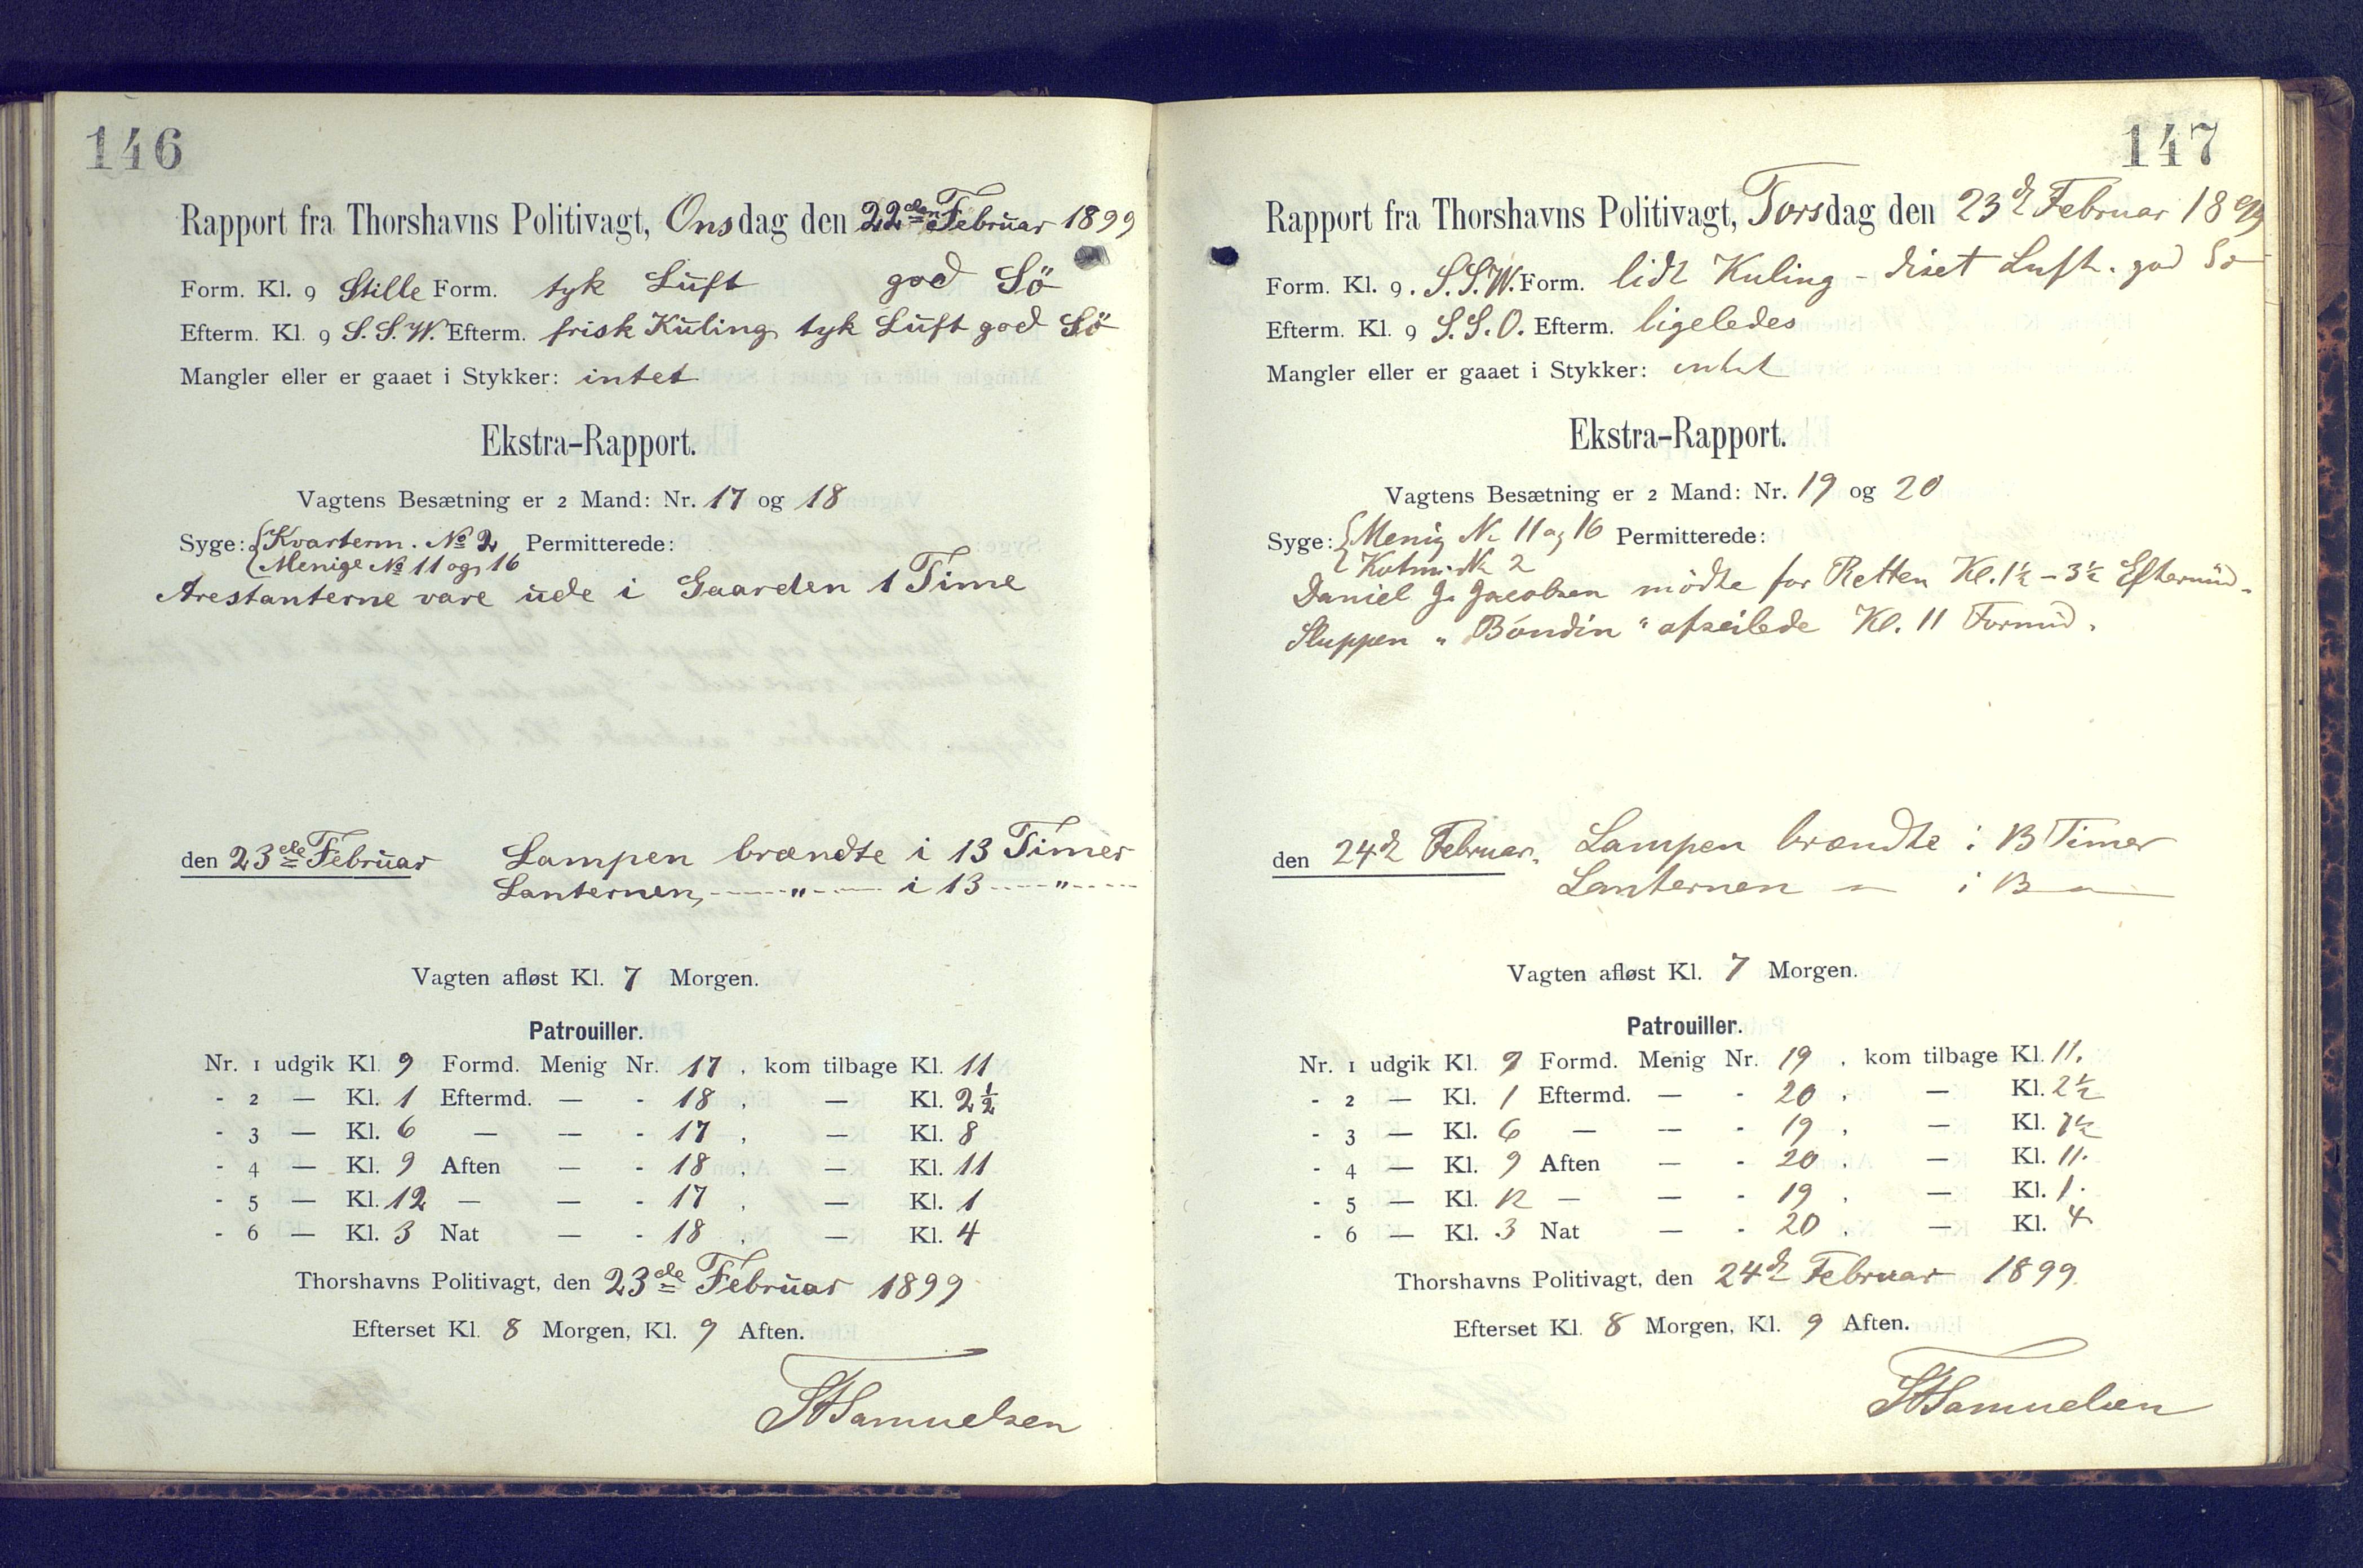 146
Rapport fra Thorshavns Politivagt, Onsdag den 22den Februar 1899
Form. Kl. 9 Stille Form. tyk Luft god Sö
Efterm. Kl. 9 S. S. W. Efterm. frisk Kuling tyk Luft god Sö
Mangler eller er gaaet i Stykker: intet
Ekstra-Rapport.
Vagtens Besætning er 2 Mand: Nr. 17 og 18
Syge: { Kvarterm. No 2 Permitterede:
Menige No 11 og 16
Arestanterne vare ude i Gaarden 1 Time
den 23de Februar Lampen brændte i 13 Timer
Lanternen, — " — i 13 — " —
Vagten afløst Kl. 7 Morgen.
Patrouiller.
Nr. 1 udgik Kl. 9 Formd. Menig Nr. 17, kom tilbage Kl. 11
- 2 — Kl. 1 Eftermd. — - 18, — Kl. 2½
- 3 — Kl. 6 — — - 17, — Kl. 8
- 4 — Kl. 9 Aften — - 18, — Kl. 11
- 5 — Kl. 12 — — - 17, — Kl. 1
- 6 — Kl. 3 Nat — - 18, — Kl. 4
Thorshavns Politivagt, den 23de Februar 1899
Efterset Kl. 8 Morgen, Kl. 9 Aften.
Samuelsen
147
Rapport fra Thorshavns Politivagt, Torsdag den 23d Februar 1899
Form. Kl. 9. S. S. W. Form. lidt Kuling - diset Luft. god Sö
Efterm. Kl. 9 S. S. O. Efterm. ligeledes
Mangler eller er gaaet i Stykker: intet
Ekstra-Rapport.
Vagtens Besætning er 2 Mand: Nr. 19 og 20
Syge: { Menig N. 11 og 16 Permitterede:
N. 2
Daniel J. Jacobsen mödte for Retten Kl. 1½ - 3½ Eftermid.
Sluppen "Bóndin" afseilede Kl. 11 Formid.
den 24d Februar. Lampen brændte i 13 Timer
Lanternen — i 13 —
Vagten afløst Kl. 7 Morgen.
Patrouiller.
Nr. 1 udgik Kl. 9 Formd. Menig Nr. 19, kom tilbage Kl. 11.
- 2 — Kl. 1 Eftermd. — - 20, — Kl. 2½
- 3 — Kl. 6 — — - 19, — Kl. 7½
- 4 — Kl. 9 Aften — - 20, — Kl. 11.
- 5 — Kl. 12 — — - 19, — Kl. 1.
- 6 — Kl. 3 Nat — - 20, — Kl. 4
Thorshavns Politivagt, den 24d Februar 1899.
Efterset Kl. 8 Morgen, Kl. 9 Aften.
Samuelsen